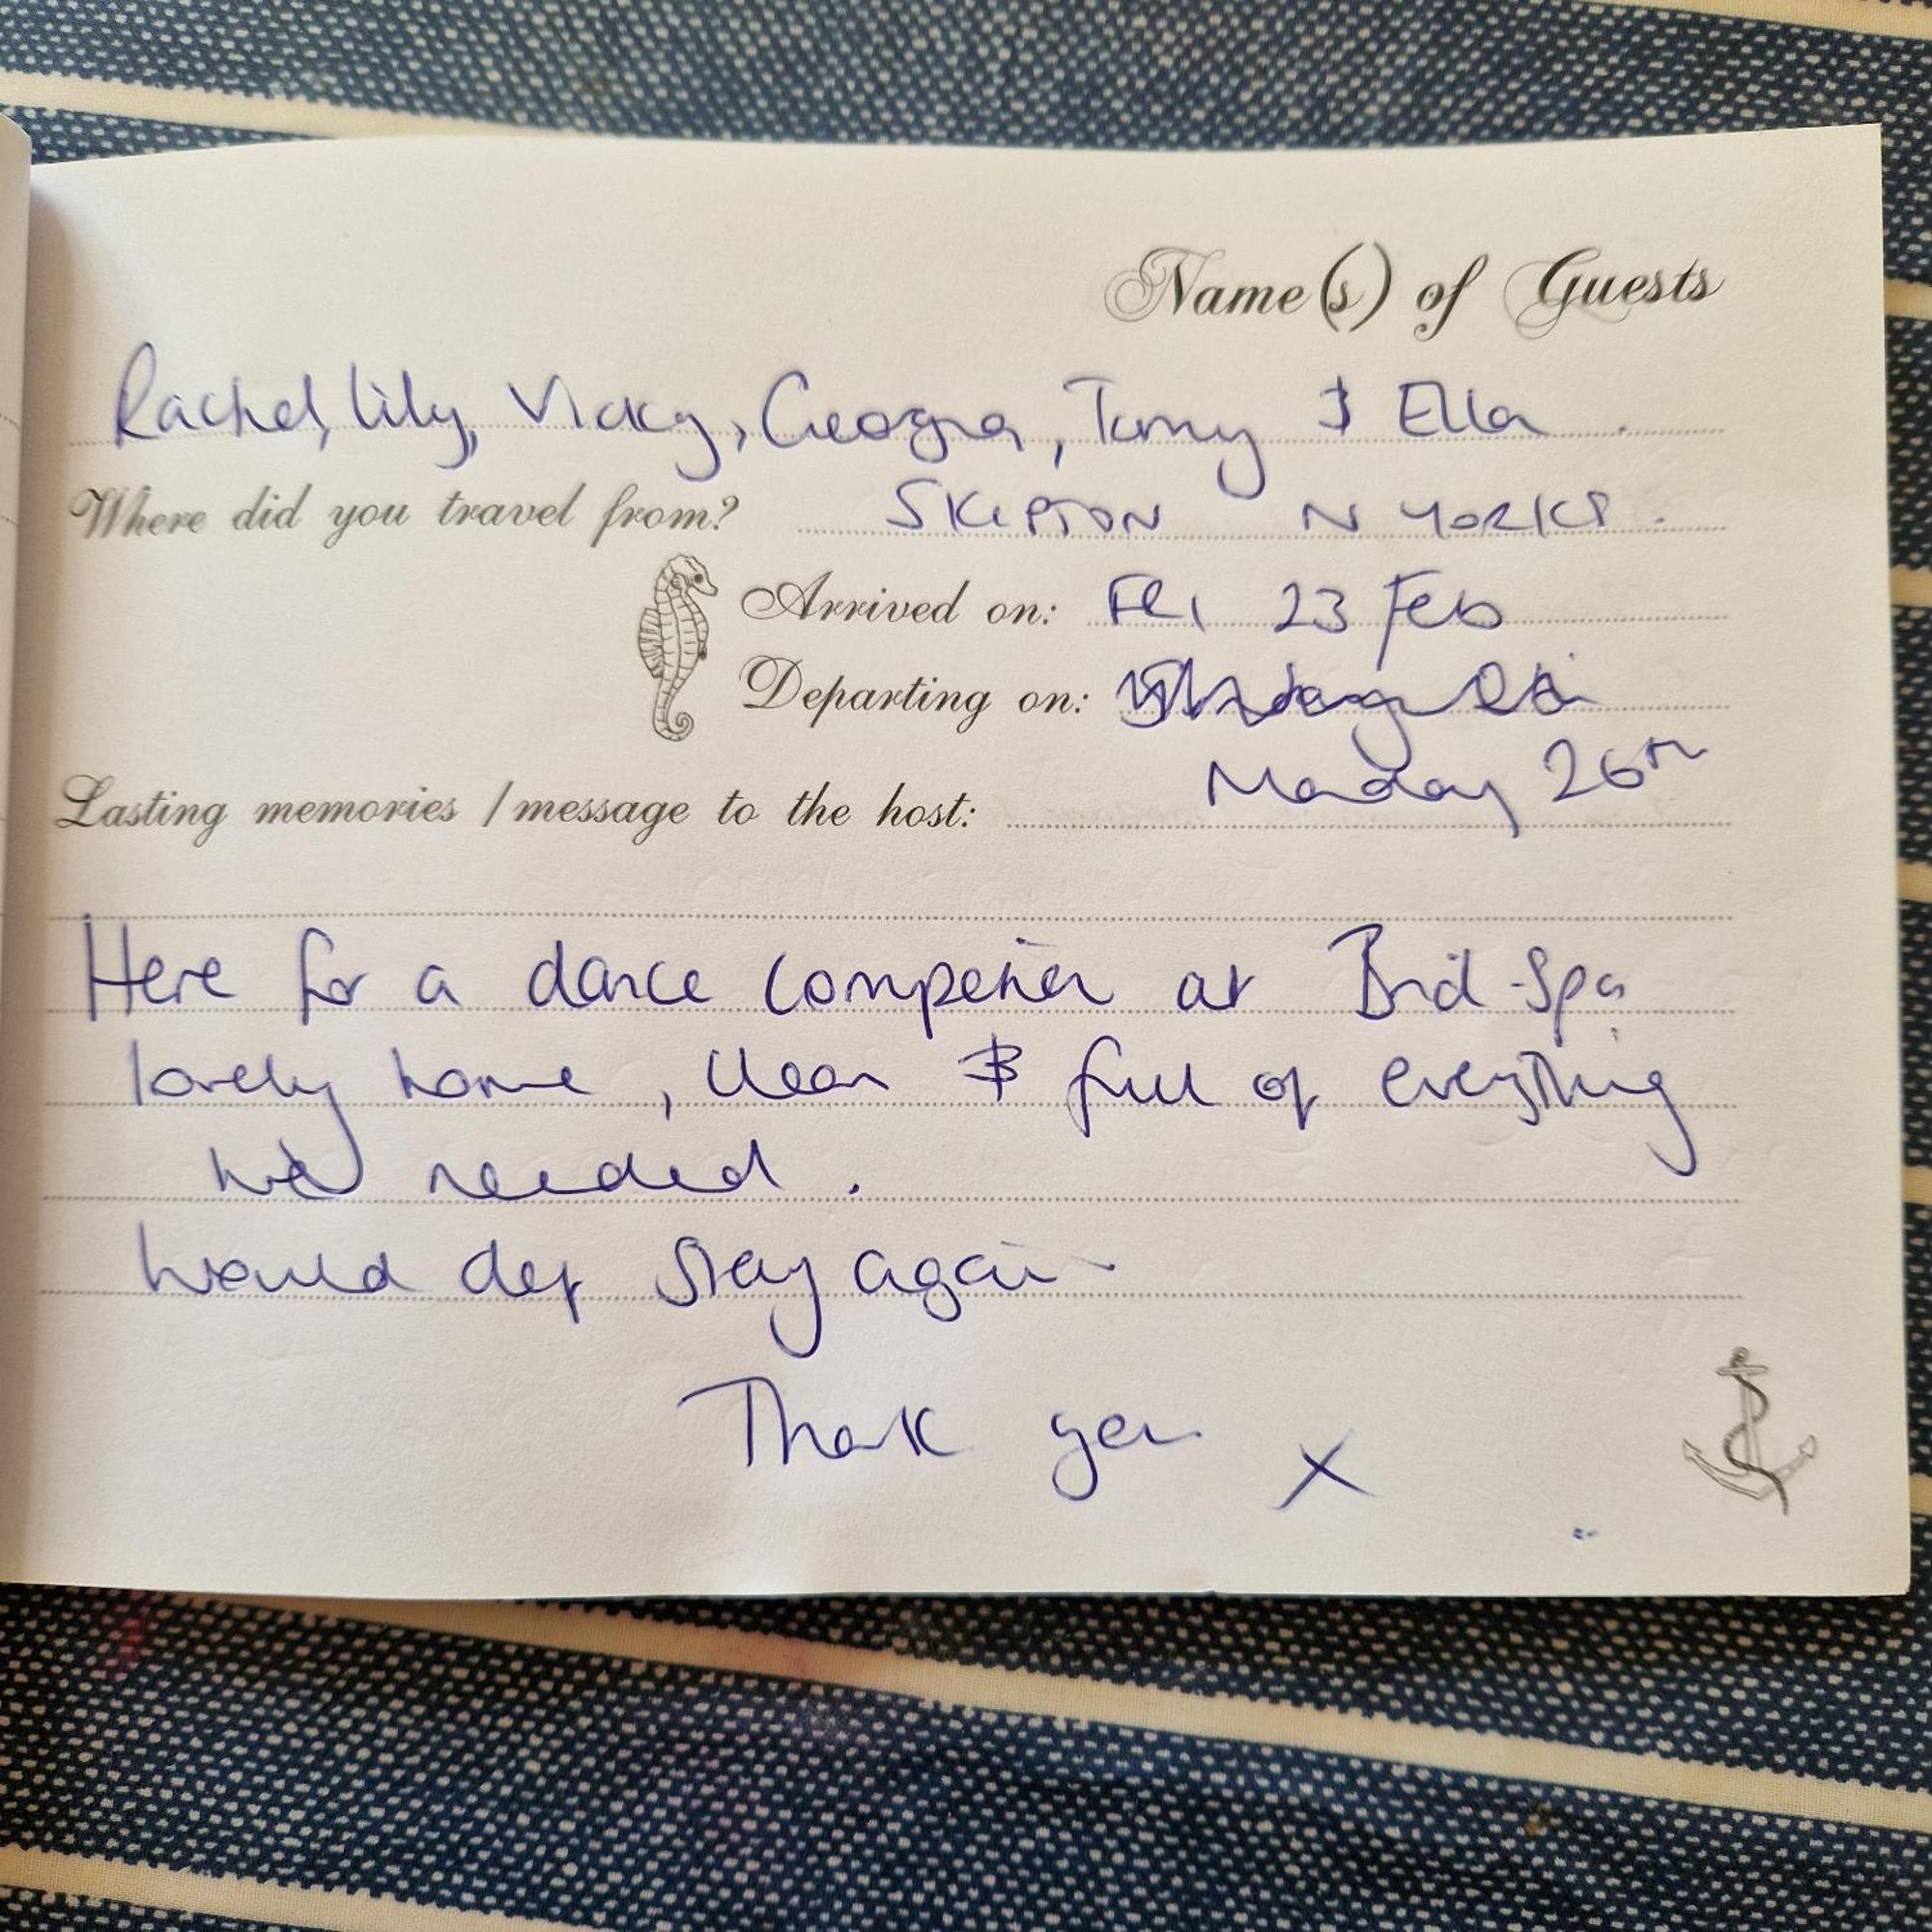 Name(s) of Guests
Rachel, Lily, Vicky, Georgia, & Ella.
Where did you travel from? SKIPTON N YORKS.
Arrived on: FRI 23 Feb
Departing on:
Monday 26th
Lasting memories / message to the host:
Here for a dance competition at Brid Spa
lovely home, clean & full of everything
we needed.
Would def stay again
Thank you x